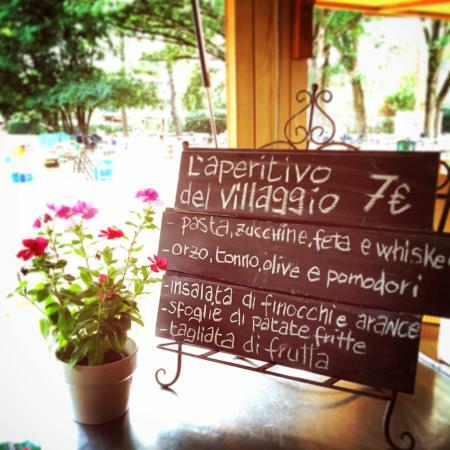 L'aperitivo
del Villaggio 7€
- pasta, zucchine, feta e whiske
- orzo, tonno, olive e pomodori
- insalata di finocchi e arance
- sfoglie di patate fritte
- tagliata di frutta